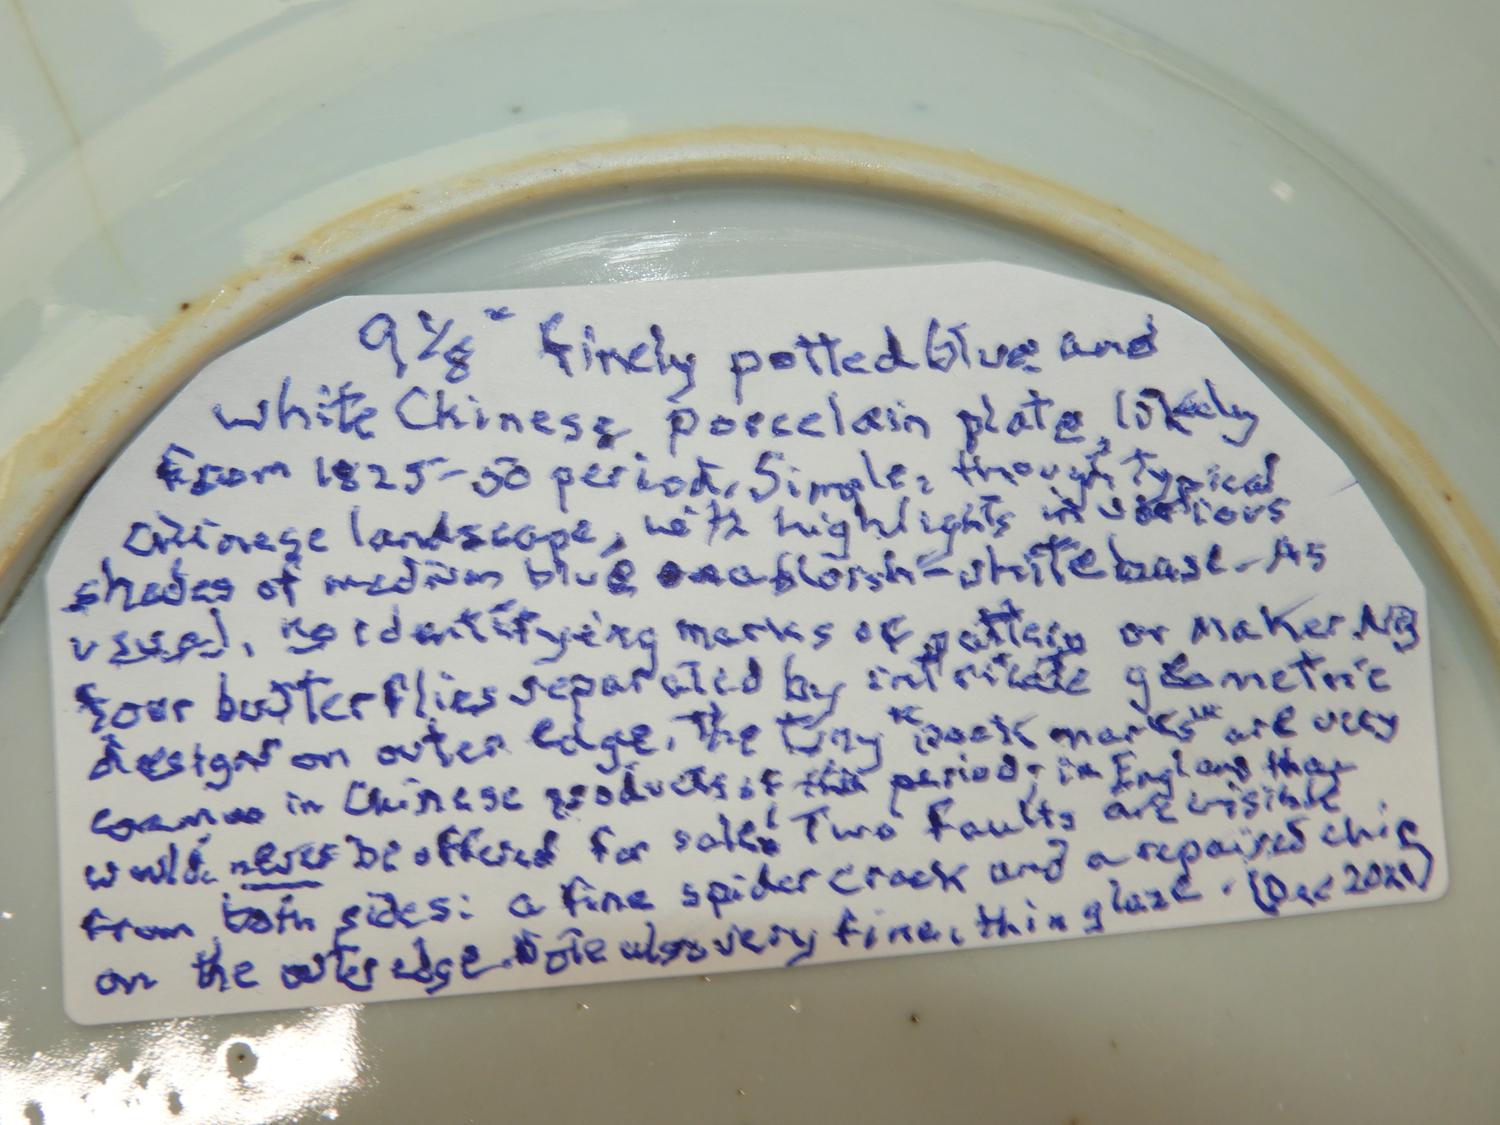 9 1/8" finely potted blue and
white Chinese porcelain plate, likely
from 1825-50 period. Simple, though typical
Chinese landscape, with highlights in various
shades of medium blue on a bluish-white base. As
usual, no identifying marks of pattern or maker. NB
four butterflies separated by intricate geometric
designs on outer edge. The tiny "pock marks" are very
common in Chinese products of this period; in England they
would never be offered for sale! Two faults are visible
from both sides: a fine spider crack and a repaired chip
on the outer edge. Note also very fine, thin glaze. (Dec 2021)